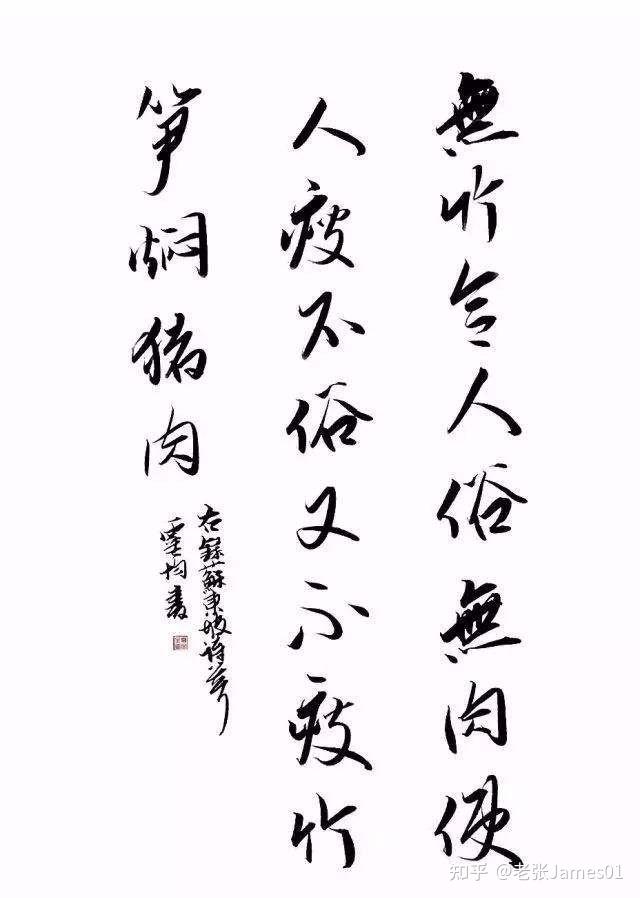 無竹令人俗無肉便
人瘦不俗又不瘦竹
笋焖猪肉
右録蘇東坡詩
書
知乎 @老张James01